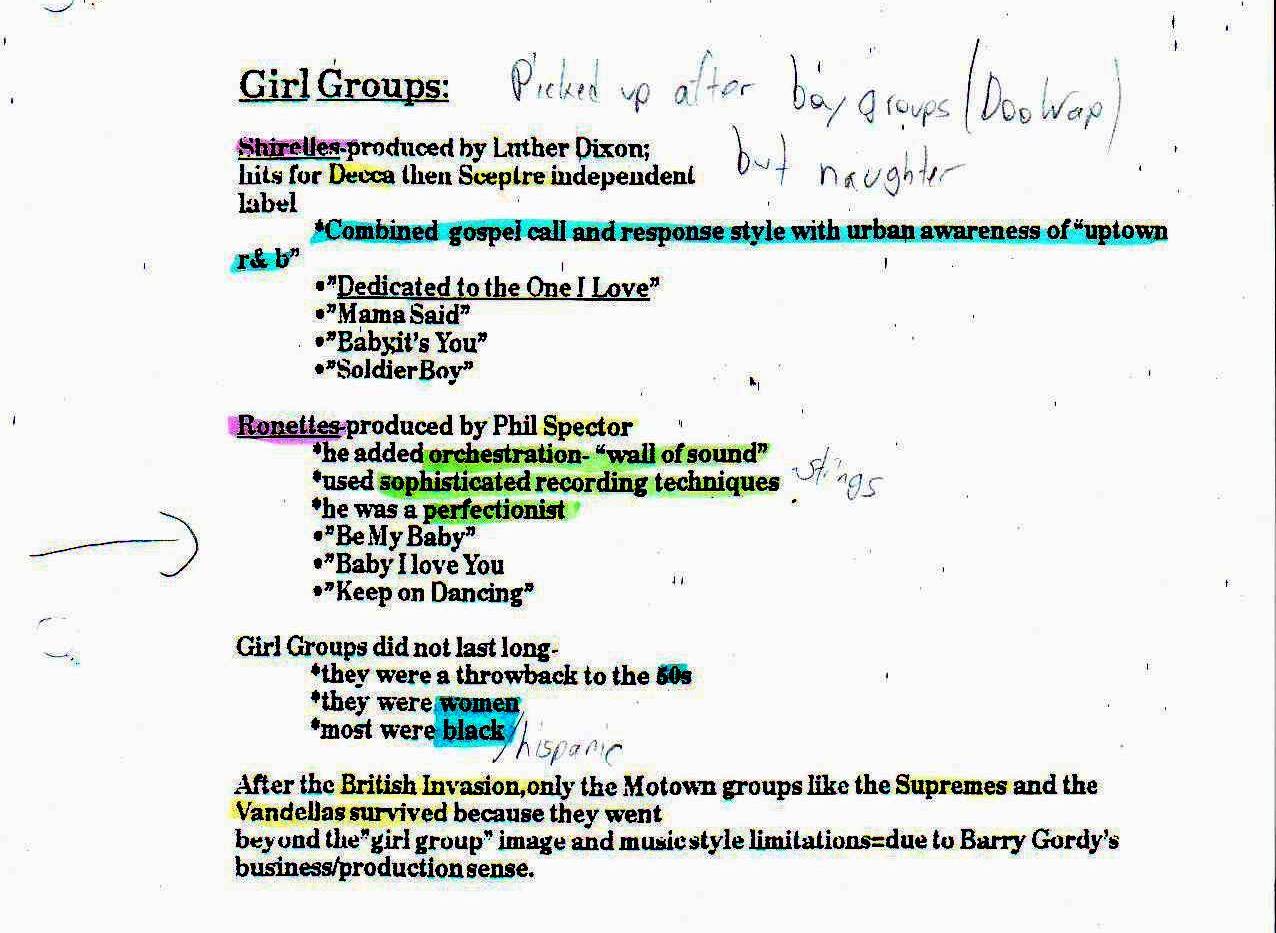 Girl Groups: Picked up after boy groups (Doo Wap)
but naughter
Shirelles-produced by Luther Dixon;
hits for Decca then Sceptre independent
label
*Combined gospel call and response style with urban awareness of "uptown
r& b"
•"Dedicated to the One I Love"
•"Mama Said"
•"Baby,it's You"
•"Soldier Boy"
Ronettes-produced by Phil Spector
*he added orchestration- "wall of sound"
*used sophisticated recording techniques
stings
*he was a perfectionist
•"Be My Baby"
•"Baby I love You
•"Keep on Dancing"
Girl Groups did not last long-
*they were a throwback to the 50s
*they were women
*most were black /hispanic
After the British Invasion,only the Motown groups like the Supremes and the
Vandellas survived because they went
beyond the"girl group" image and music style limitations=due to Barry Gordy's
business/production sense.